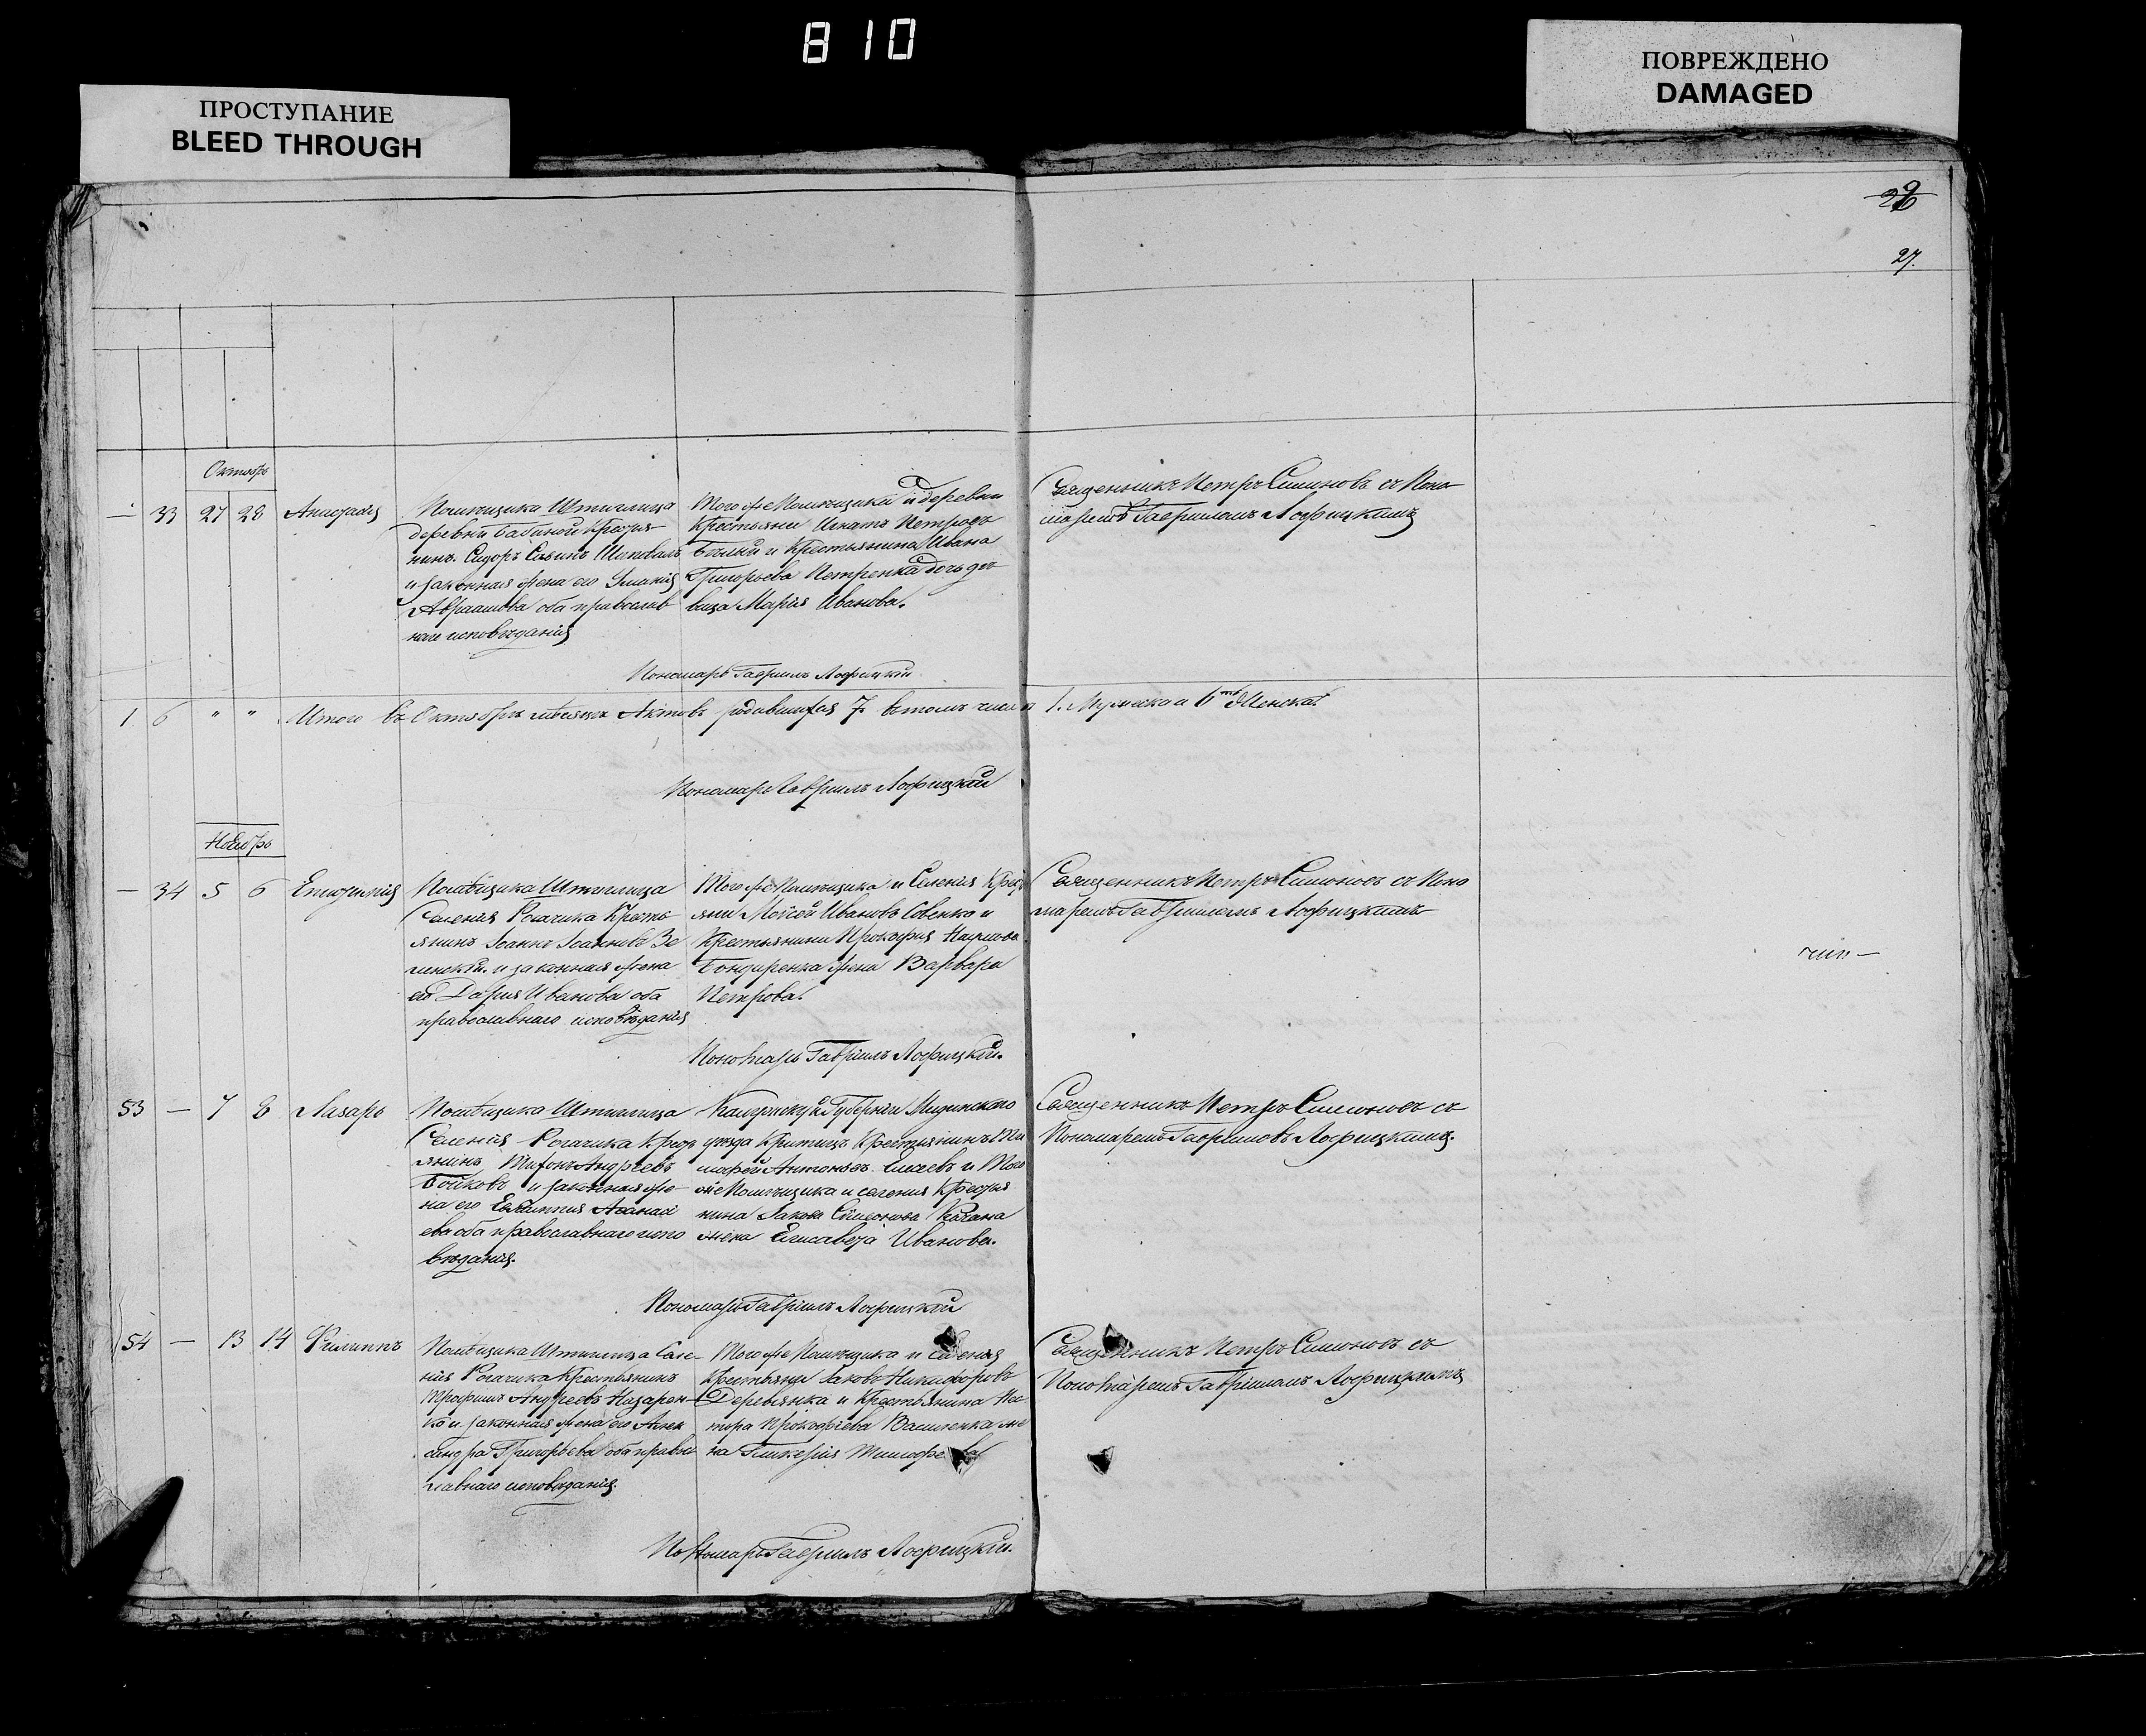 810
ПРОСТУПАНИЕ
BLEED THROUGH
ПОВРЕЖДЕНО
DAMAGED
27.
Октябрь
— 33 27 28 Анастасия
Помѣщика Штиглица
деревни Бабиной Крестья
нинъ Сидоръ Савинъ Шаповалъ
и законная жена его
Авраамова оба православ
наго исповѣданія
Того же Помѣщика и деревни
Крестьяни Игнатъ Петровъ
Бѣлый и Крестьянина Ивана
Григорьева Петренка дочь дѣ
вица Марія Иванова.
Священникъ Петръ Симоновъ съ Поно
маремъ Гавріиломъ Лофицкимъ
Пономарь Гавріилъ Лофицкій
1 6 " " Итого въ Октябрѣ мѣсяцѣ Актовъ родившихся 7. въ томъ числѣ 1. Мужеска и 6ть Женска.
Пономарь Гавріилъ Лофицкій
Ноябрь
— 34 5 6
Помѣщика Штиглица
Селенія Рогачика Кресть
янинъ Іоаннъ Іоанновъ Зе
ленскій и законная жена
его Дарія Иванова оба
православнаго исповѣданія
Того же Помѣщика и Селенія Крест
яни Мойсей Ивановъ Совенко и
Крестьянина Прокофія Наумова
Бондаренка жена Варвара
Петрова.
Священникъ Петръ Симоновъ съ Поно
маремъ Гавріиломъ Лофицкимъ
Пономарь Гавріилъ Лофицкій.
53 — 7 8 Лазарь
Помѣщика Штиглица
Селенія Рогачика Крест
янинъ Тихонъ Андреевъ
Бойковъ и законная же
на его Евѳимія Аѳанасі
ева оба православнаго испо
вѣданія.
Калужской Губерніи Мидинскаго
уѣзда Крестьянинъ Ти
мофей Антоньевъ Елисеевъ и Того
же Помѣщика и селенія Крестья
нина Іакова Симеонова Качана
жена Елисавета Иванова.
Священникъ Петръ Симоновъ съ
Пономаремъ Гавріиломъ Лофицкимъ.
Пономарь Гавріилъ Лофицкій
54 — 13 14 Филиппъ
Помѣщика Штиглица Селе
нія Рогачика Крестьянинъ
Трофимъ Андреевъ Назарен
ко и законная жена его Алек
сандра Григорьева оба право
славнаго исповѣданія.
Того же Помѣщика и Селенія
Крестьяни Іаковъ Никифоровъ
Деревянка и Крестьянина Нес
тора Прокофіева Василенка же
на Гликерія Тимофеева
Священникъ Петръ Симоновъ съ
Пономаремъ Гавріиломъ Лофицкимъ
Пономарь Гавріилъ Лофицкій.